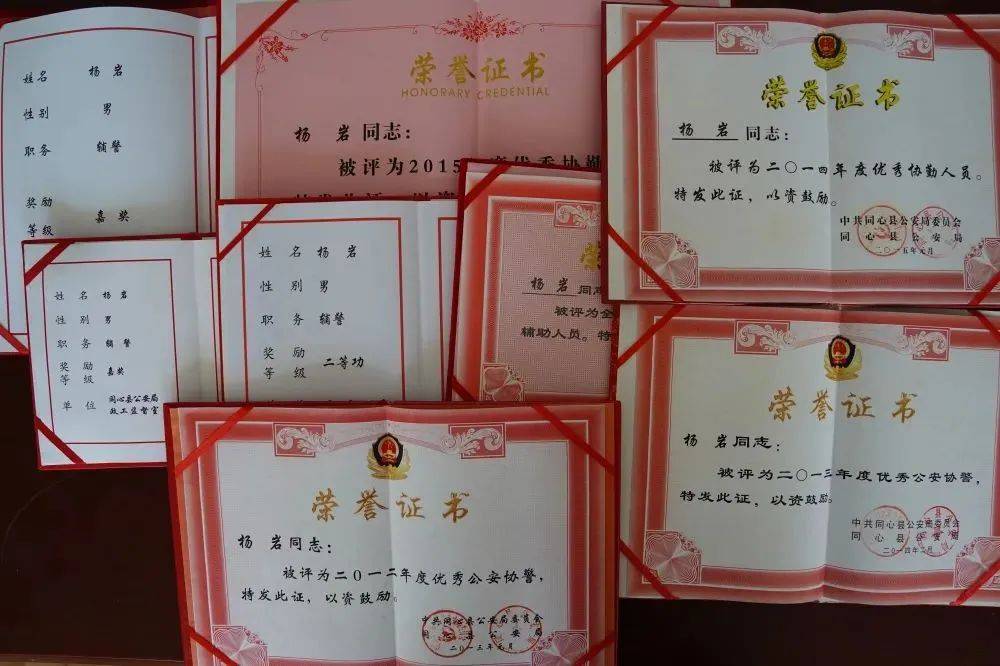 姓名 杨岩
性别 男
职务 辅警
奖励
等级 嘉奖
荣誉证书
HONORARY CREDENTIAL
杨岩同志：
被评为2015 度优秀协勤
荣誉证书
杨岩同志：
被评为二〇一四年度优秀协勤人员。
特发此证，以资鼓励。
中共同心县公安局委员会
同心县公安局
二〇一五年元月
姓名 杨岩
性别 男
职务 辅警
奖励
等级 嘉奖
单位 同心县公安局
政工监督室
姓名 杨岩
性别 男
职务 辅警
奖励
等级 二等功
杨岩同志
被评为全
辅助人员。特
荣誉证书
杨岩同志：
被评为二〇一三年度优秀公安协警，
特发此证，以资鼓励。
中共同心县公安局委员会
同心县公安局
二〇一四年二月
荣誉证书
杨岩同志：
被评为二〇一二年度优秀公安协警，
特发此证，以资鼓励。
中共同心县公安局委员会
同心县公安局
二〇一三年元月